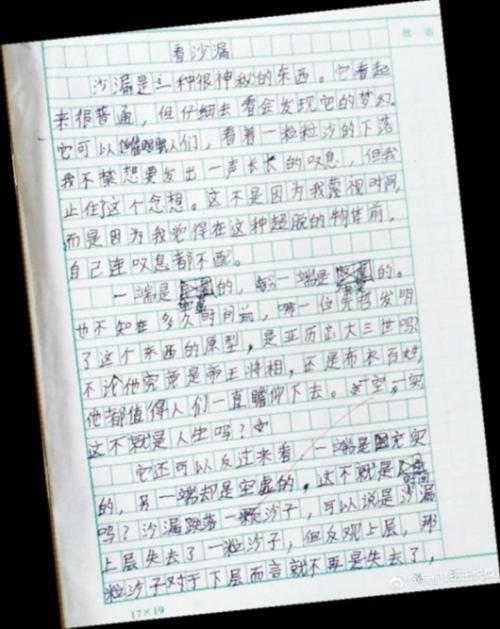 看沙漏
沙漏是一种很神秘的东西。它看起
来很普通，但仔细去看会发现它的梦幻。
它可以催眠人们，看着一粒粒沙的下落
我不禁想要发出一声长长的叹息，但我
止住了这个念想。这不是因为我蔑视时间，
而是因为我觉得在这种超脱的物件前，
自己连叹息都不配。
一端是的，另一端是的。
也不知在多久时间前，哪一位先哲发明
了这个东西的原型，是亚历山大三世吗
不论他究竟是帝王将相，还是布衣百姓
他都值得人们一直瞻仰下去。一空，一实
这不就是人生吗？
它还可以反过来看，一端是充实
的，另一端却是空虚的，这不就是
吗？沙漏跌落一颗沙子，可以说是沙漏
上层失去了一粒沙子，但反观上层，那
粒沙子对于下层而言就不再是失去了，
17×19